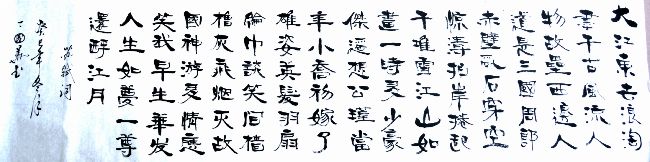 大江東去浪淘
盡千古風流人
物故壘西邊人
道是三國周郎
赤壁乱石穿空
惊濤拍岸捲起
千堆雪江山如
畫一時多少豪
傑遥想公瑾當
年小喬初嫁了
雄姿英發羽扇
綸巾談笑间檣
櫓灰飛烟灭故
國神游多情應
笑我早生華发
人生如夢一尊
還酹江月
苏轼词
癸巳年冬月